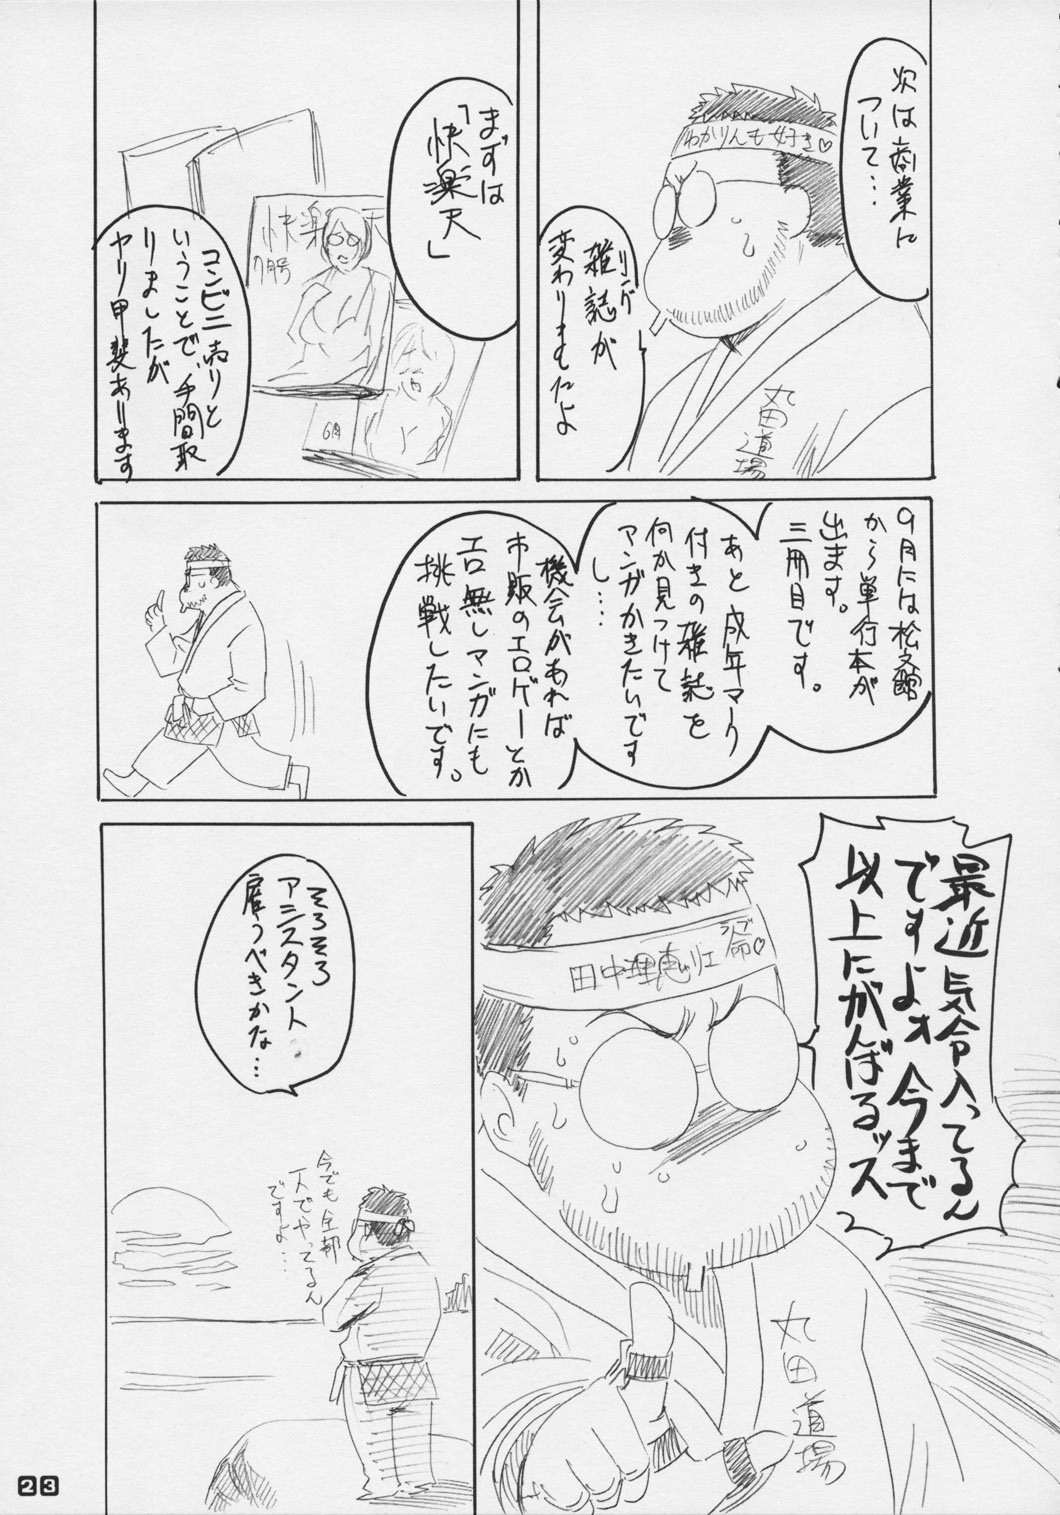 次は商業に
ついて…
わかりんも好き♡
リング
雑誌が
変わりますたよ
丸田道場
まずは
「快楽天」
快楽天
7月号
6月
コンビニ売りと
いうことで、手間取
りましたが
ヤリ甲斐あります
9月には松文館
から単行本が
出ます。
三冊目です。
あと成年マーク
付きの雑誌を
何か見つけて
マンガかきたいです
し…
機会があれば
市販のエロゲーとか
エロ無しマンガにも
挑戦したいです。
最近気合入ってるん
ですよォ今まで
以上にがんばるッス
田中理恵
命♡
丸田道場
そろそろ
アシスタント
雇うべきかな…
今でも全部
一人でやってるん
ですよ…
23